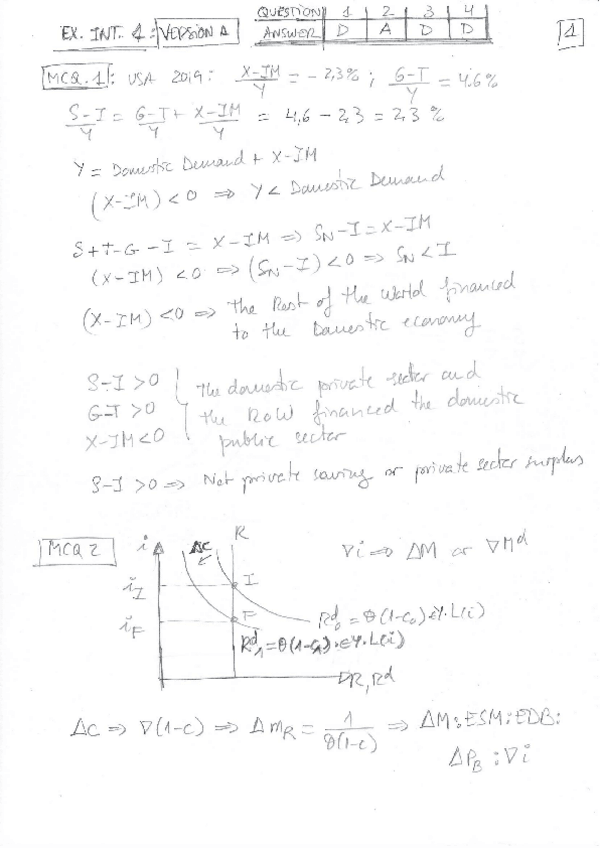 EX. INT. 4: VERSION A
QUESTION 1 2 3 4
ANSWER D A D D
1
MCQ.1: USA 2019: X-IM/Y = -2,3%; G-T/Y = 4.6%
S-I/Y = G-T/Y + X-IM/Y = 4,6 - 2,3 = 2,3 %
Y = Domestic Demand + X-IM
(X-IM) < 0 ⇒ Y < Domestic Demand
S+T-G-I = X-IM ⇒ SN-I = X-IM
(X-IM) < 0 ⇒ (SN-I) < 0 ⇒ SN < I
(X-IM) < 0 ⇒ the Rest of the World financed
to the Domestic economy
S-I > 0
G-T > 0
X-IM < 0
the domestic private sector and
the RoW financed the domestic
public sector
S-I > 0 ⇒ Net private saving or private sector surplus
MCQ 2
i
ΔC
R
∇i ⇒ ΔM or ∇Md
iI
I
iF
F
Rd0 = θ(1-c0)·€Y·L(i)
Rd1 = θ(1-c1)·€Y·L(i)
R, Rd
Δc ⇒ ∇(1-c) ⇒ ΔmR = 1/θ(1-c) ⇒ ΔM: ESM: EDB:
ΔPB: ∇i